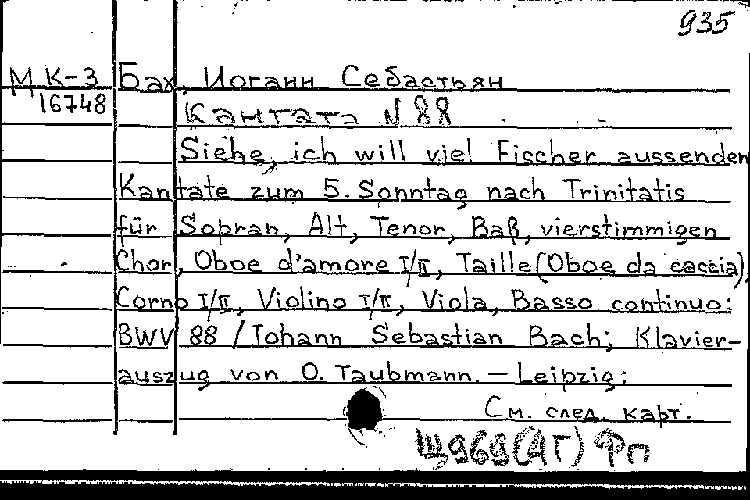 935
М К-3 Бах, Иоганн Себастьян
16748 Кантата N 88
Siehe, ich will viel Fischer aussenden
Kantate zum 5. Sonntag nach Trinitatis
für Sopran, Alt, Tenor, Baß, vierstimmigen
Chor, Oboe d'amore I/II, Taille (Oboe da caccia),
Corno I/II, Violino I/II, Viola, Basso continuo:
BWV 88 / Iohann Sebastian Bach; Klavier-
auszug von O. Taubmann. – Leipzig:
См. след. карт.
Щ969(4Г) Фп